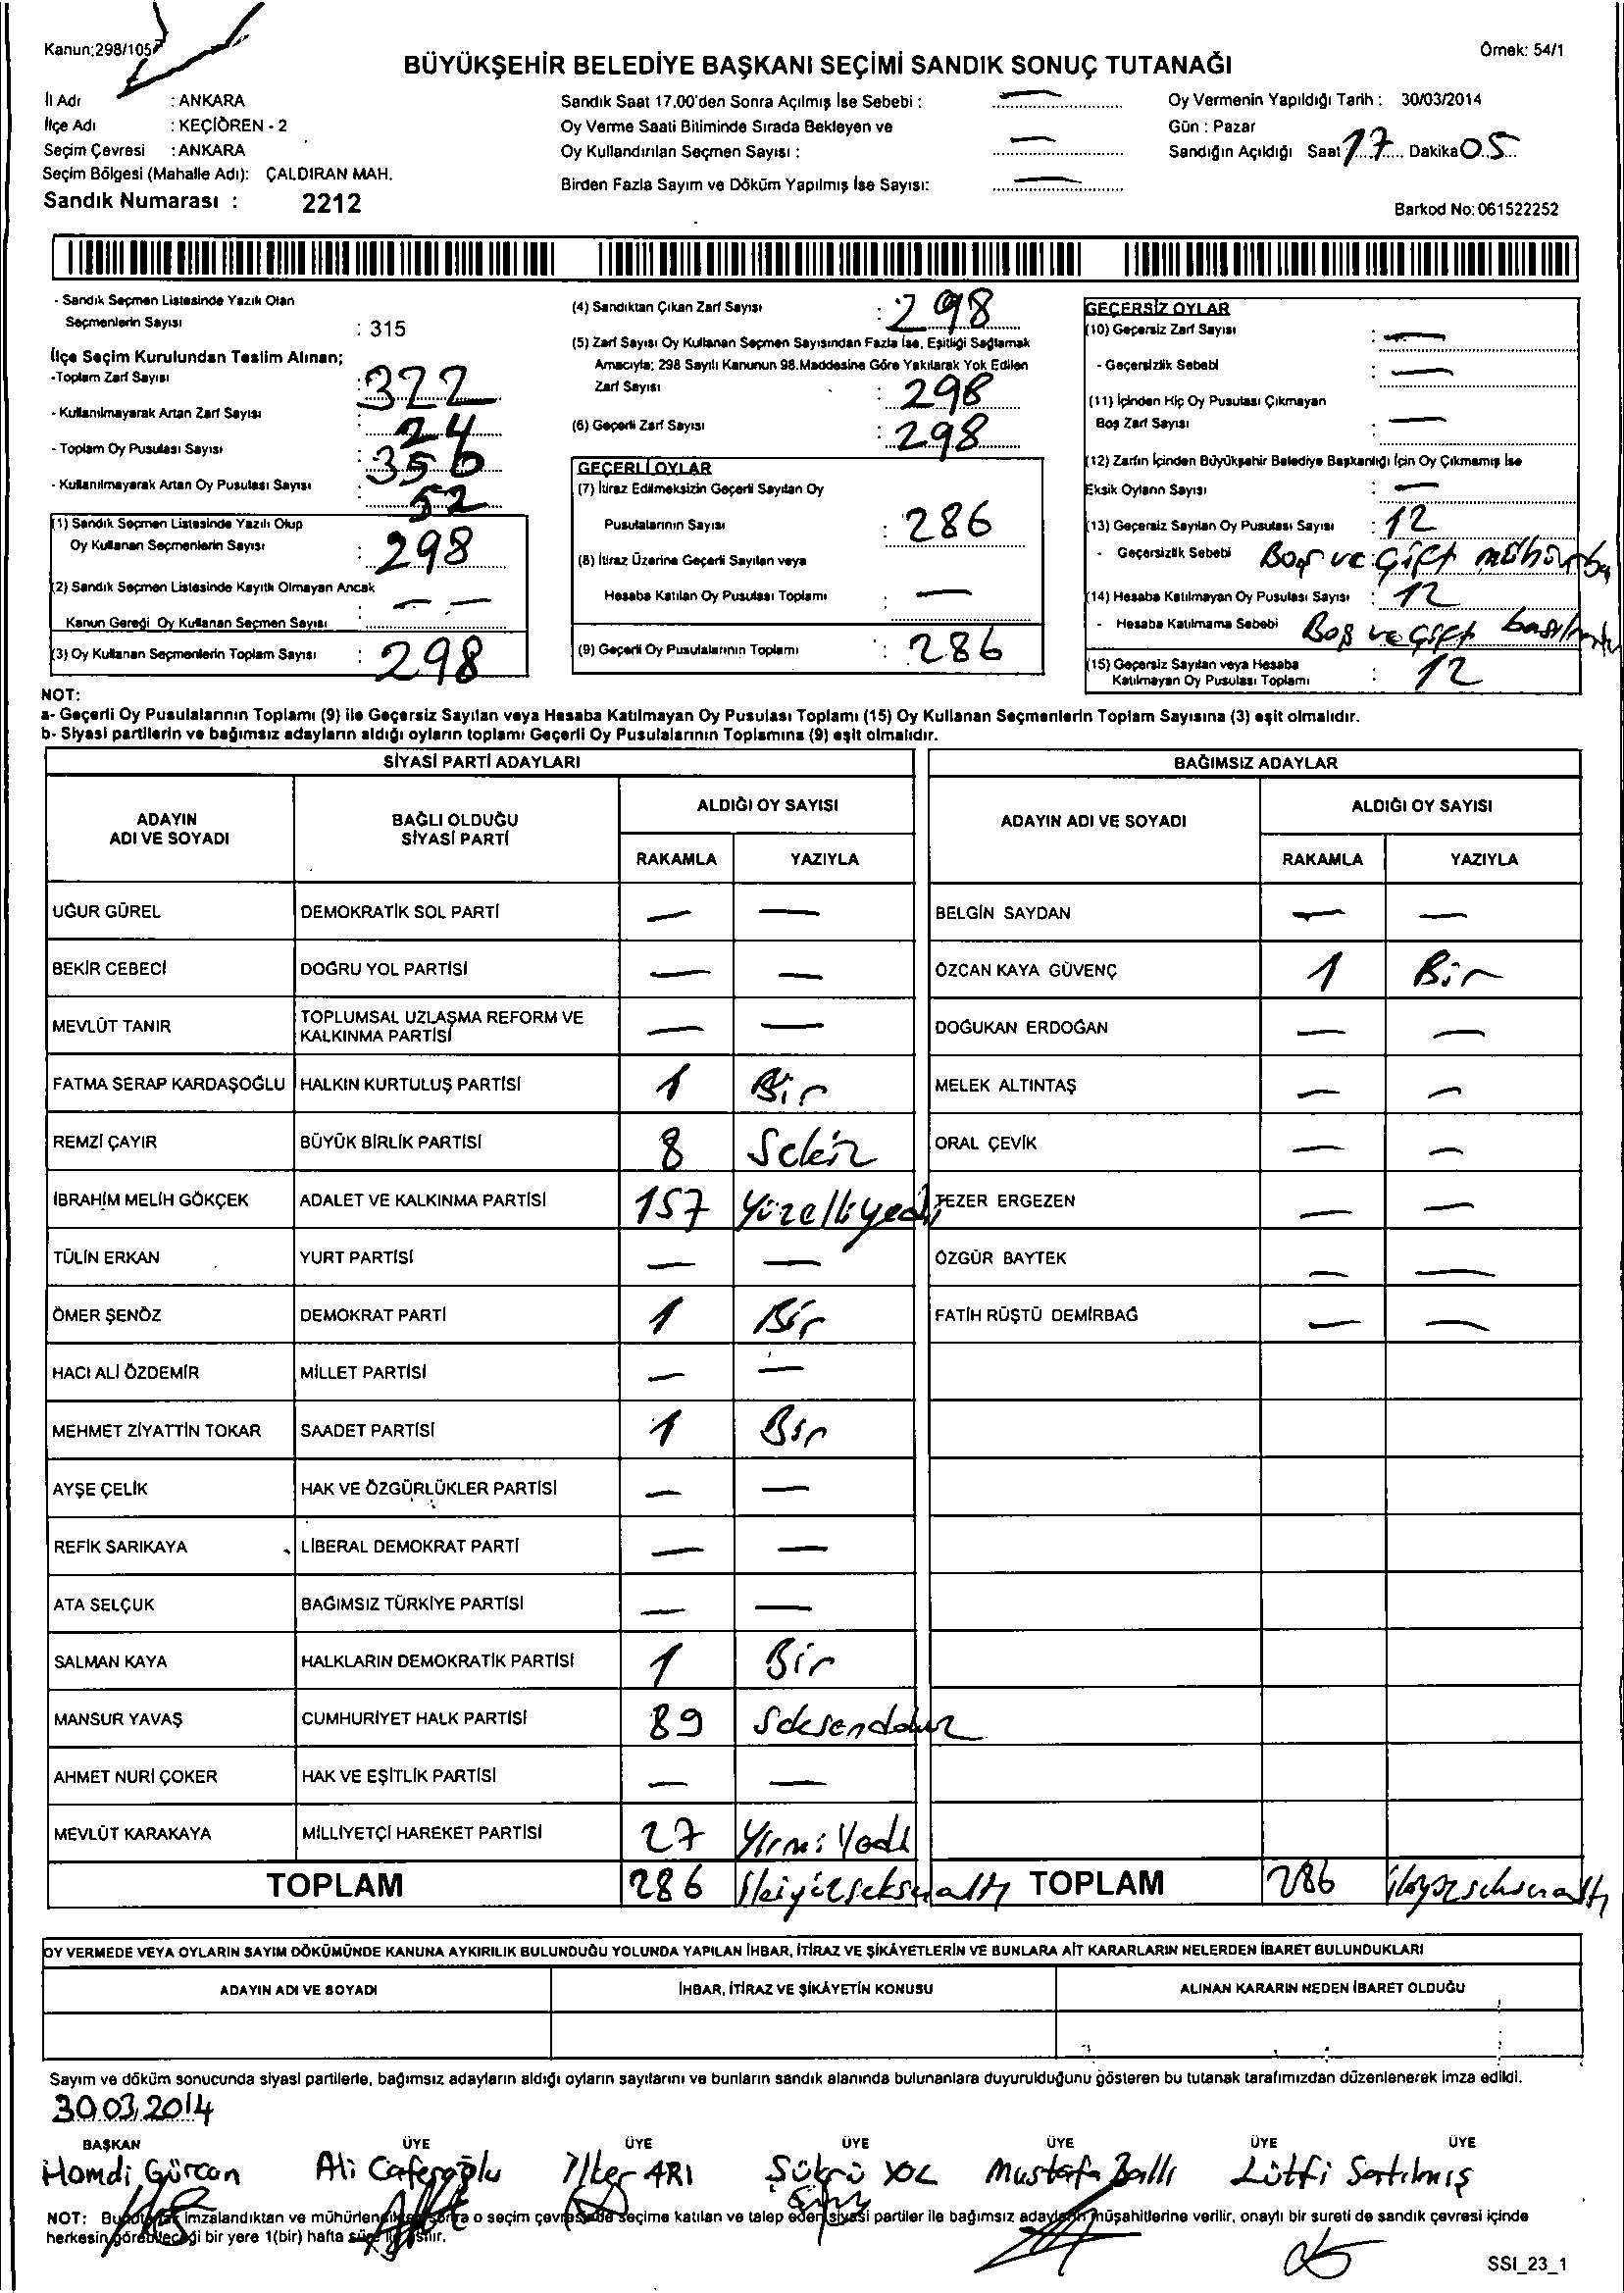 Kanun:298/105
Örnek: 54/1
BÜYÜKŞEHİR BELEDİYE BAŞKANI SEÇİMİ SANDIK SONUÇ TUTANAĞI
İl Adı : ANKARA
İlçe Adı : KEÇİÖREN - 2
Seçim Çevresi : ANKARA
Seçim Bölgesi (Mahalle Adı): ÇALDIRAN MAH.
Sandık Numarası : 2212
Sandık Saat 17.00'den Sonra Açılmış İse Sebebi : —
Oy Verme Saati Bitiminde Sırada Bekleyen ve
Oy Kullandırılan Seçmen Sayısı : —
Birden Fazla Sayım ve Döküm Yapılmış İse Sayısı: —
Oy Vermenin Yapıldığı Tarih : 30/03/2014
Gün : Pazar
Sandığın Açıldığı Saat 17 Dakika 05
Barkod No: 061522252
- Sandık Seçmen Listesinde Yazılı Olan
Seçmenlerin Sayısı : 315
İlçe Seçim Kurulundan Teslim Alınan;
-Toplam Zarf Sayısı : 322
- Kullanılmayarak Artan Zarf Sayısı : 24
- Toplam Oy Pusulası Sayısı : 350
- Kullanılmayarak Artan Oy Pusulası Sayısı : 52
(1) Sandık Seçmen Listesinde Yazılı Olup
Oy Kullanan Seçmenlerin Sayısı : 298
(2) Sandık Seçmen Listesinde Kayıtlı Olmayan Ancak
Kanun Gereği Oy Kullanan Seçmen Sayısı : — —
(3) Oy Kullanan Seçmenlerin Toplam Sayısı : 298
(4) Sandıktan Çıkan Zarf Sayısı : 298
(5) Zarf Sayısı Oy Kullanan Seçmen Sayısından Fazla İse, Eşitliği Sağlamak
Amacıyla; 298 Sayılı Kanunun 98.Maddesine Göre Yakılarak Yok Edilen
Zarf Sayısı : 298
(6) Geçerli Zarf Sayısı : 298
GEÇERLİ OYLAR
(7) İtiraz Edilmeksizin Geçerli Sayılan Oy
Pusulalarının Sayısı : 286
(8) İtiraz Üzerine Geçerli Sayılan veya
Hesaba Katılan Oy Pusulası Toplamı : —
(9) Geçerli Oy Pusulalarının Toplamı : 286
GEÇERSİZ OYLAR
(10) Geçersiz Zarf Sayısı : —
- Geçersizlik Sebebi : —
(11) İçinden Hiç Oy Pusulası Çıkmayan
Boş Zarf Sayısı : —
(12) Zarfın İçinden Büyükşehir Belediye Başkanlığı İçin Oy Çıkmamış İse
Eksik Oyların Sayısı : —
(13) Geçersiz Sayılan Oy Pusulası Sayısı : 12
- Geçersizlik Sebebi Boş ve Çift
(14) Hesaba Katılmayan Oy Pusulası Sayısı : 12
- Hesaba Katılmama Sebebi Boş ve Çift
(15) Geçersiz Sayılan veya Hesaba
Katılmayan Oy Pusulası Toplamı : 12
NOT:
a- Geçerli Oy Pusulalarının Toplamı (9) ile Geçersiz Sayılan veya Hesaba Katılmayan Oy Pusulası Toplamı (15) Oy Kullanan Seçmenlerin Toplam Sayısına (3) eşit olmalıdır.
b- Siyasi partilerin ve bağımsız adayların aldığı oyların toplamı Geçerli Oy Pusulalarının Toplamına (9) eşit olmalıdır.
SİYASİ PARTİ ADAYLARI
ADAYIN ADI VE SOYADI BAĞLI OLDUĞU SİYASİ PARTİ ALDIĞI OY SAYISI
RAKAMLA YAZIYLA
UĞUR GÜREL DEMOKRATİK SOL PARTİ — —
BEKİR CEBECİ DOĞRU YOL PARTİSİ — —
MEVLÜT TANIR TOPLUMSAL UZLAŞMA REFORM VE KALKINMA PARTİSİ — —
FATMA SERAP KARDAŞOĞLU HALKIN KURTULUŞ PARTİSİ 1 Bir
REMZİ ÇAYIR BÜYÜK BİRLİK PARTİSİ 8 Sekiz
İBRAHİM MELİH GÖKÇEK ADALET VE KALKINMA PARTİSİ 157 Yüzelliyedi
TÜLİN ERKAN YURT PARTİSİ — —
ÖMER ŞENÖZ DEMOKRAT PARTİ 1 Bir
HACI ALİ ÖZDEMİR MİLLET PARTİSİ — —
MEHMET ZİYATTİN TOKAR SAADET PARTİSİ 1 Bir
AYŞE ÇELİK HAK VE ÖZGÜRLÜKLER PARTİSİ — —
REFİK SARIKAYA LİBERAL DEMOKRAT PARTİ — —
ATA SELÇUK BAĞIMSIZ TÜRKİYE PARTİSİ — —
SALMAN KAYA HALKLARIN DEMOKRATİK PARTİSİ 1 Bir
MANSUR YAVAŞ CUMHURİYET HALK PARTİSİ 89 Seksendokuz
AHMET NURİ ÇOKER HAK VE EŞİTLİK PARTİSİ — —
MEVLÜT KARAKAYA MİLLİYETÇİ HAREKET PARTİSİ 27 Yirmi Yedi
TOPLAM 286 İkiyüzseksenaltı
BAĞIMSIZ ADAYLAR
ADAYIN ADI VE SOYADI ALDIĞI OY SAYISI
RAKAMLA YAZIYLA
BELGİN SAYDAN — —
ÖZCAN KAYA GÜVENÇ 1 Bir
DOĞUKAN ERDOĞAN — —
MELEK ALTINTAŞ — —
ORAL ÇEVİK — —
TEZER ERGEZEN — —
ÖZGÜR BAYTEK — —
FATİH RÜŞTÜ DEMİRBAĞ — —
TOPLAM 286 ikiyüzseksenaltı
OY VERMEDE VEYA OYLARIN SAYIM DÖKÜMÜNDE KANUNA AYKIRILIK BULUNDUĞU YOLUNDA YAPILAN İHBAR, İTİRAZ VE ŞİKÂYETLERİN VE BUNLARA AİT KARARLARIN NELERDEN İBARET BULUNDUKLARI
ADAYIN ADI VE SOYADI İHBAR, İTİRAZ VE ŞİKÂYETİN KONUSU ALINAN KARARIN NEDEN İBARET OLDUĞU
Sayım ve döküm sonucunda siyasi partilerle, bağımsız adayların aldığı oyların sayılarını ve bunların sandık alanında bulunanlara duyurulduğunu gösteren bu tutanak tarafımızdan düzenlenerek imza edildi.
30.03.2014
BAŞKAN ÜYE ÜYE ÜYE ÜYE ÜYE ÜYE
Hamdi Gürcan Ali Caferoğlu İlker ARI Şükrü YOL Mustafa Ballı Lütfi Satılmış
NOT: Bu tutanak imzalandıktan ve mühürlendikten sonra o seçim çevresinde seçime katılan ve talep eden siyasi partiler ile bağımsız adayların müşahitlerine verilir, onaylı bir sureti de sandık çevresi içinde
herkesin görebileceği bir yere 1(bir) hafta süre ile asılır.
SSI_23_1